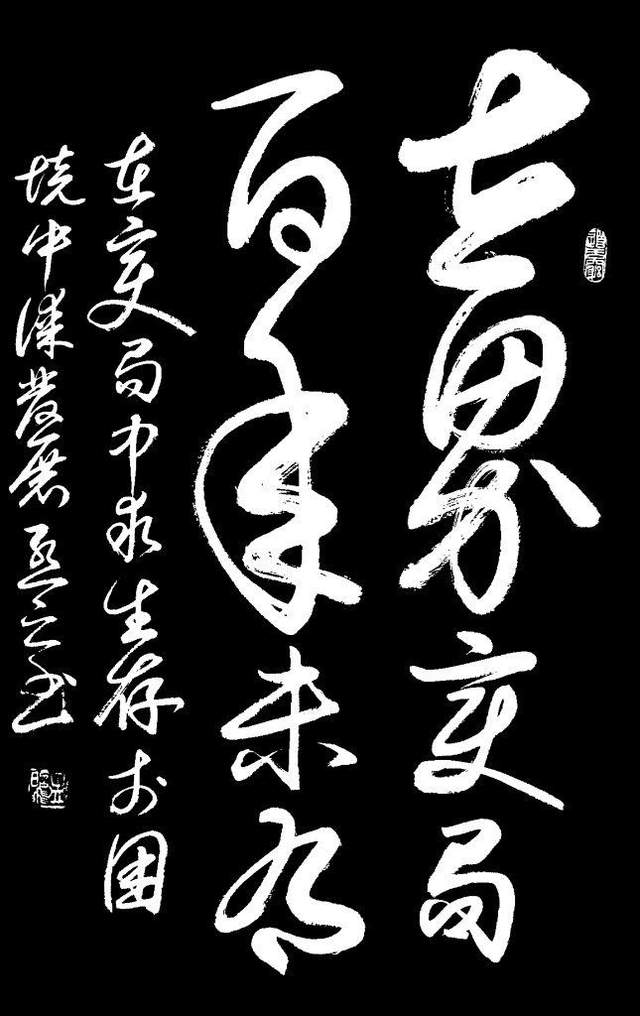 世界变局
百年未有
在变局中求生存于困
境中谋发展